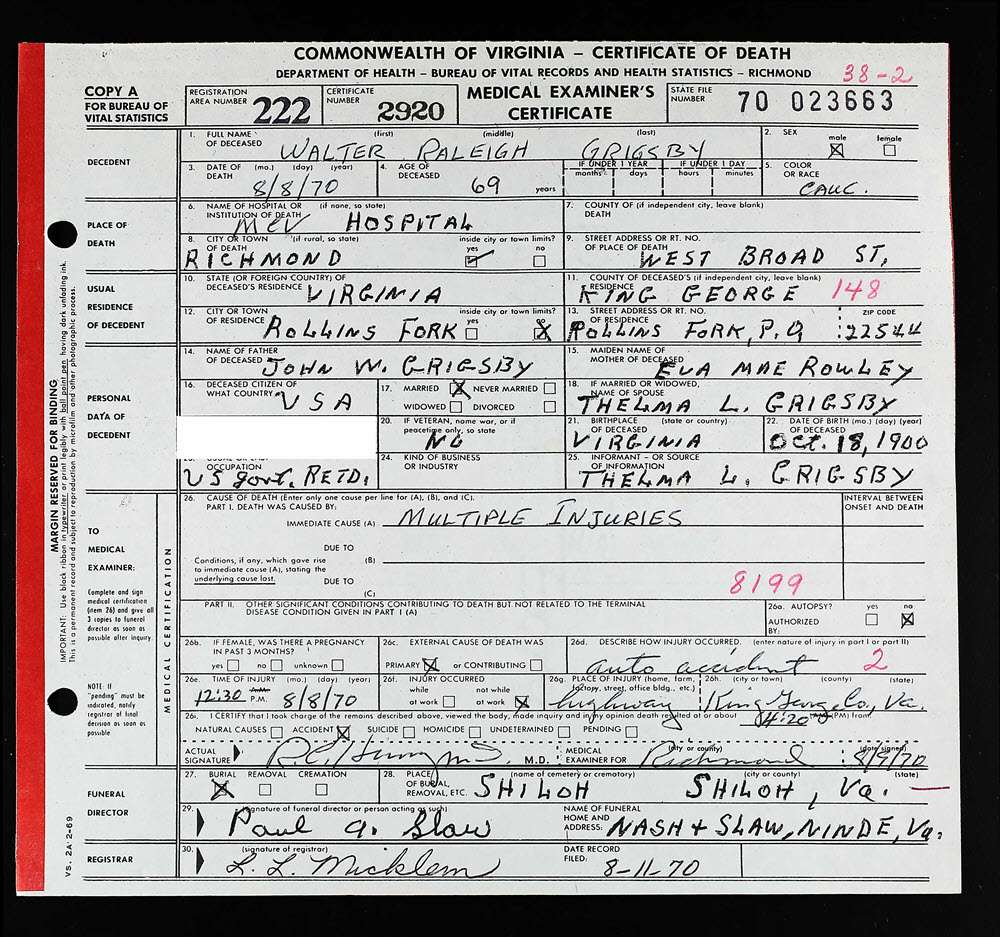 COMMONWEALTH OF VIRGINIA – CERTIFICATE OF DEATH
DEPARTMENT OF HEALTH – BUREAU OF VITAL RECORDS AND HEALTH STATISTICS – RICHMOND 38-2
COPY A
FOR BUREAU OF VITAL STATISTICS
REGISTRATION AREA NUMBER 222
CERTIFICATE NUMBER 2920
MEDICAL EXAMINER'S CERTIFICATE
STATE FILE NUMBER 70 023663
DECEDENT
1. FULL NAME OF DECEASED (first) (middle) (last)
WALTER RALEIGH GRIGSBY
2. SEX male female
3. DATE OF DEATH (mo.) (day) (year) 8/8/70
4. AGE OF DECEASED 69 years
IF UNDER 1 YEAR months days
IF UNDER 1 DAY hours minutes
5. COLOR OR RACE CAUC.
PLACE OF DEATH
6. NAME OF HOSPITAL OR INSTITUTION OF DEATH (if none, so state) MCV HOSPITAL
7. COUNTY OF DEATH (if independent city, leave blank)
8. CITY OR TOWN OF DEATH (if rural, so state) RICHMOND
inside city or town limits? yes no
9. STREET ADDRESS OR RT. NO. OF PLACE OF DEATH WEST BROAD ST,
USUAL RESIDENCE OF DECEDENT
10. STATE (OR FOREIGN COUNTRY) OF DECEASED'S RESIDENCE VIRGINIA
11. COUNTY OF DECEASED'S RESIDENCE (if independent city, leave blank) KING GEORGE 148
12. CITY OR TOWN OF RESIDENCE ROLLINS FORK
inside city or town limits? yes no
13. STREET ADDRESS OR RT. NO. OF RESIDENCE ROLLINS FORK, P.O
ZIP CODE 22544
PERSONAL DATA OF DECEDENT
14. NAME OF FATHER OF DECEASED JOHN W. GRIGSBY
15. MAIDEN NAME OF MOTHER OF DECEASED EVA MAE ROWLEY
16. DECEASED CITIZEN OF WHAT COUNTRY USA
17. MARRIED NEVER MARRIED
WIDOWED DIVORCED
18. IF MARRIED OR WIDOWED, NAME OF SPOUSE THELMA L. GRIGSBY
20. IF VETERAN, name war, or if peacetime only, so state NO
21. BIRTHPLACE OF DECEASED (state or country) VIRGINIA
22. DATE OF BIRTH OF DECEASED (mo.) (day) (year) Oct. 18, 1900
OCCUPATION US Govt. RETD.
24. KIND OF BUSINESS OR INDUSTRY
25. INFORMANT – OR SOURCE OF INFORMATION THELMA L. GRIGSBY
TO MEDICAL EXAMINER:
Complete and sign medical certification (item 26) and give all 3 copies to funeral director as soon as possible after inquiry.
NOTE: If "pending" must be indicated, notify registrar of final decision as soon as possible
MEDICAL CERTIFICATION
26. CAUSE OF DEATH (Enter only one cause per line for (A), (B), and (C).
PART I. DEATH WAS CAUSED BY:
INTERVAL BETWEEN ONSET AND DEATH
IMMEDIATE CAUSE (A) MULTIPLE INJURIES
DUE TO
Conditions, if any, which gave rise to immediate cause (A), stating the underlying cause last.
(B)
DUE TO
(C)
8199
PART II. OTHER SIGNIFICANT CONDITIONS CONTRIBUTING TO DEATH BUT NOT RELATED TO THE TERMINAL DISEASE CONDITION GIVEN IN PART I (A)
26a. AUTOPSY? yes no
AUTHORIZED BY:
26b. IF FEMALE, WAS THERE A PREGNANCY IN PAST 3 MONTHS?
yes no unknown
26c. EXTERNAL CAUSE OF DEATH WAS
PRIMARY or CONTRIBUTING
26d. DESCRIBE HOW INJURY OCCURRED. (enter nature of injury in part I or part II)
auto accident 2
26e. TIME OF INJURY (mo.) (day) (year)
12:30 A.M. P.M. 8/8/70
26f. INJURY OCCURRED
while at work not while at work
26g. PLACE OF INJURY (home, farm, factory, street, office bldg., etc.) highway
26h. (city or town) (county) (state)
King George Co, Va.
26i. I CERTIFY that I took charge of the remains described above, viewed the body, made inquiry and in my opinion death resulted at or about 4:20 (AM) (PM) from:
NATURAL CAUSES ACCIDENT SUICIDE HOMICIDE UNDETERMINED PENDING
ACTUAL SIGNATURE M.D.
MEDICAL EXAMINER FOR (city or county) Richmond
(date signed) 8/9/70
FUNERAL DIRECTOR
27. BURIAL REMOVAL CREMATION
28. PLACE OF BURIAL, REMOVAL, ETC. (name of cemetery or crematory) (city or county) (state)
SHILOH SHILOH, Va.
29. (signature of funeral director or person acting as such)
Paul A. Slaw
NAME OF FUNERAL HOME AND ADDRESS: NASH + SLAW, NINDE, Va.
REGISTRAR
30. (signature of registrar)
L. L. Micklem
DATE RECORD FILED: 8-11-70
MARGIN RESERVED FOR BINDING
IMPORTANT: Use black ribbon in typewriter or print legibly with ball point pen having dark unfading ink.
This is a permanent record and subject to reproduction by microfilm and other photographic process.
VS. 2A 2-69